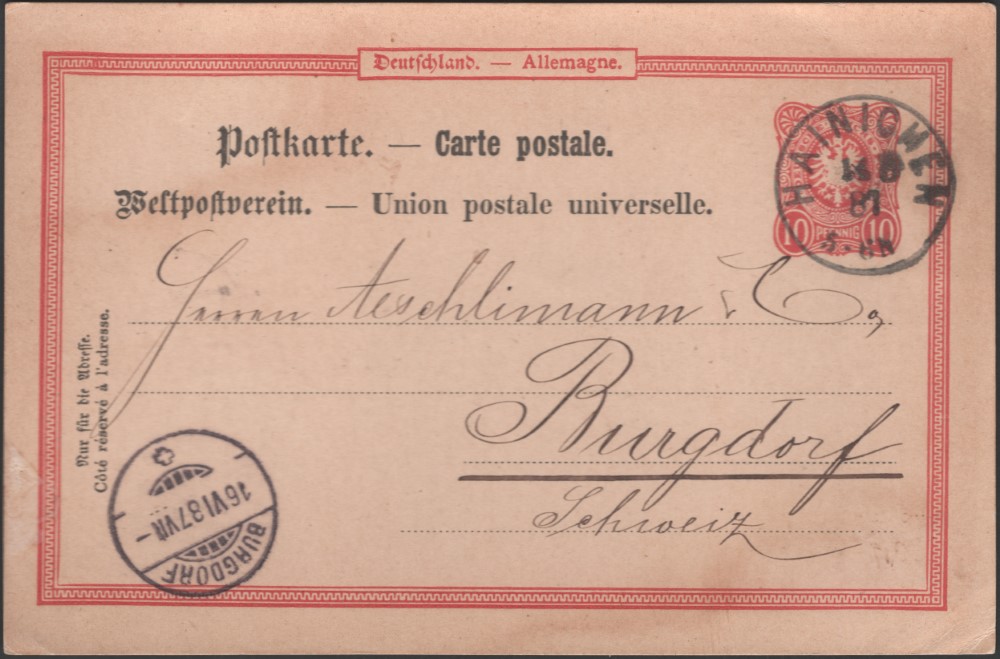 Deutschland. — Allemagne.
Postkarte. — Carte postale.
Weltpostverein. — Union postale universelle.
HAINICHEN
87
5-6N
10 PFENNIG 10
Herren Aeschlimann & Co,
Burgdorf
Schweiz
Nur für die Adresse.
Côté réservé à l'adresse.
16 VI 87 VII
BURGDORF